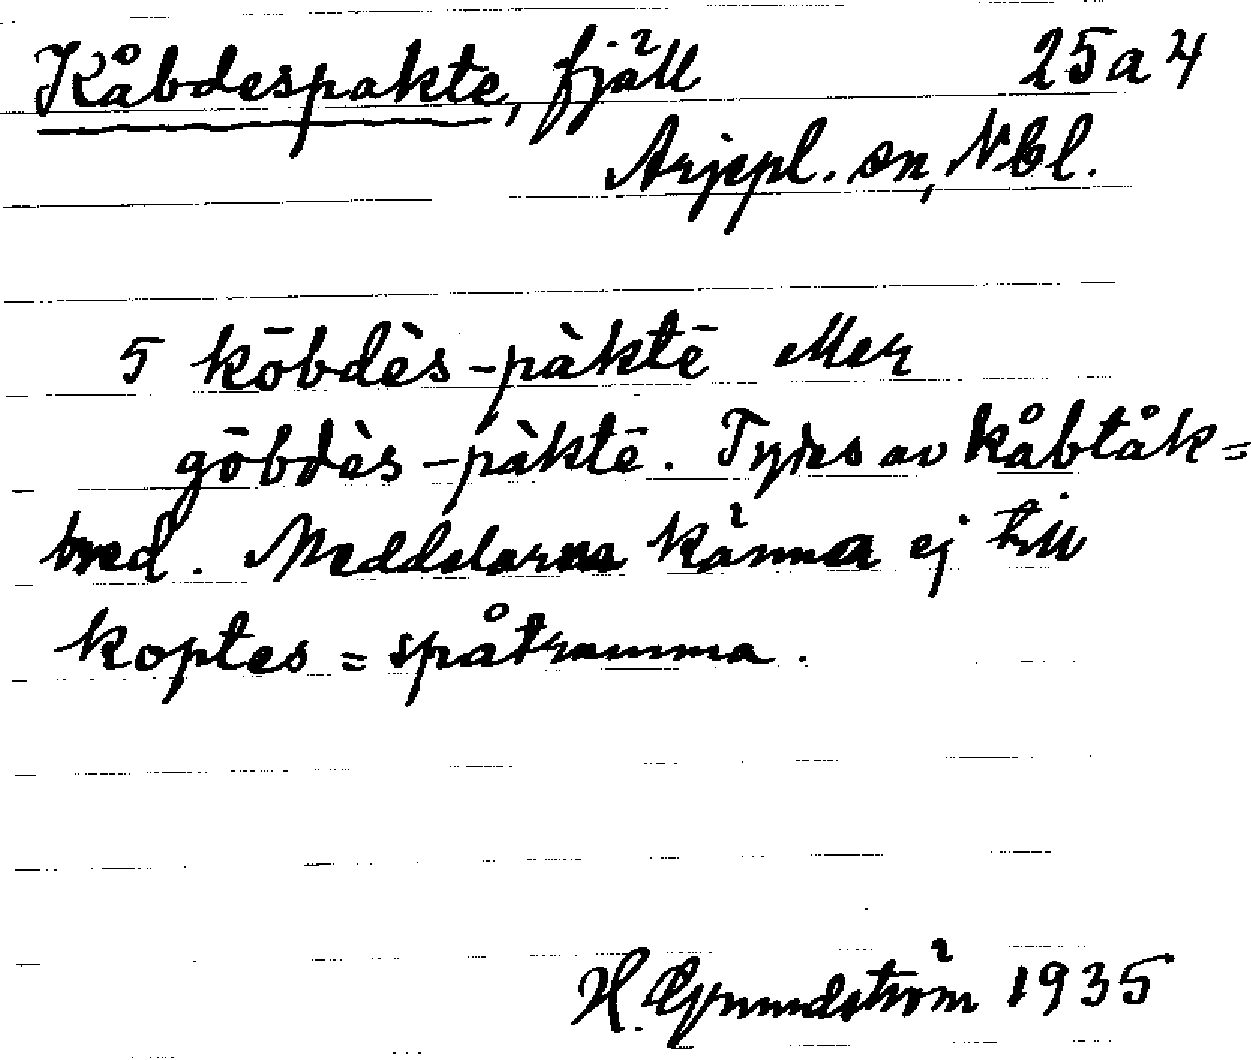 Kåbdespakte, fjäll 25a4
Arjepl. sn, Nbl.
5 kōbdès-pàktē Mer
gōbdès-pàktē. Tydes av kåbtåk=
bred. Meddelarna känna ej till
koptes = spåtramma.
H. Grundström 1935